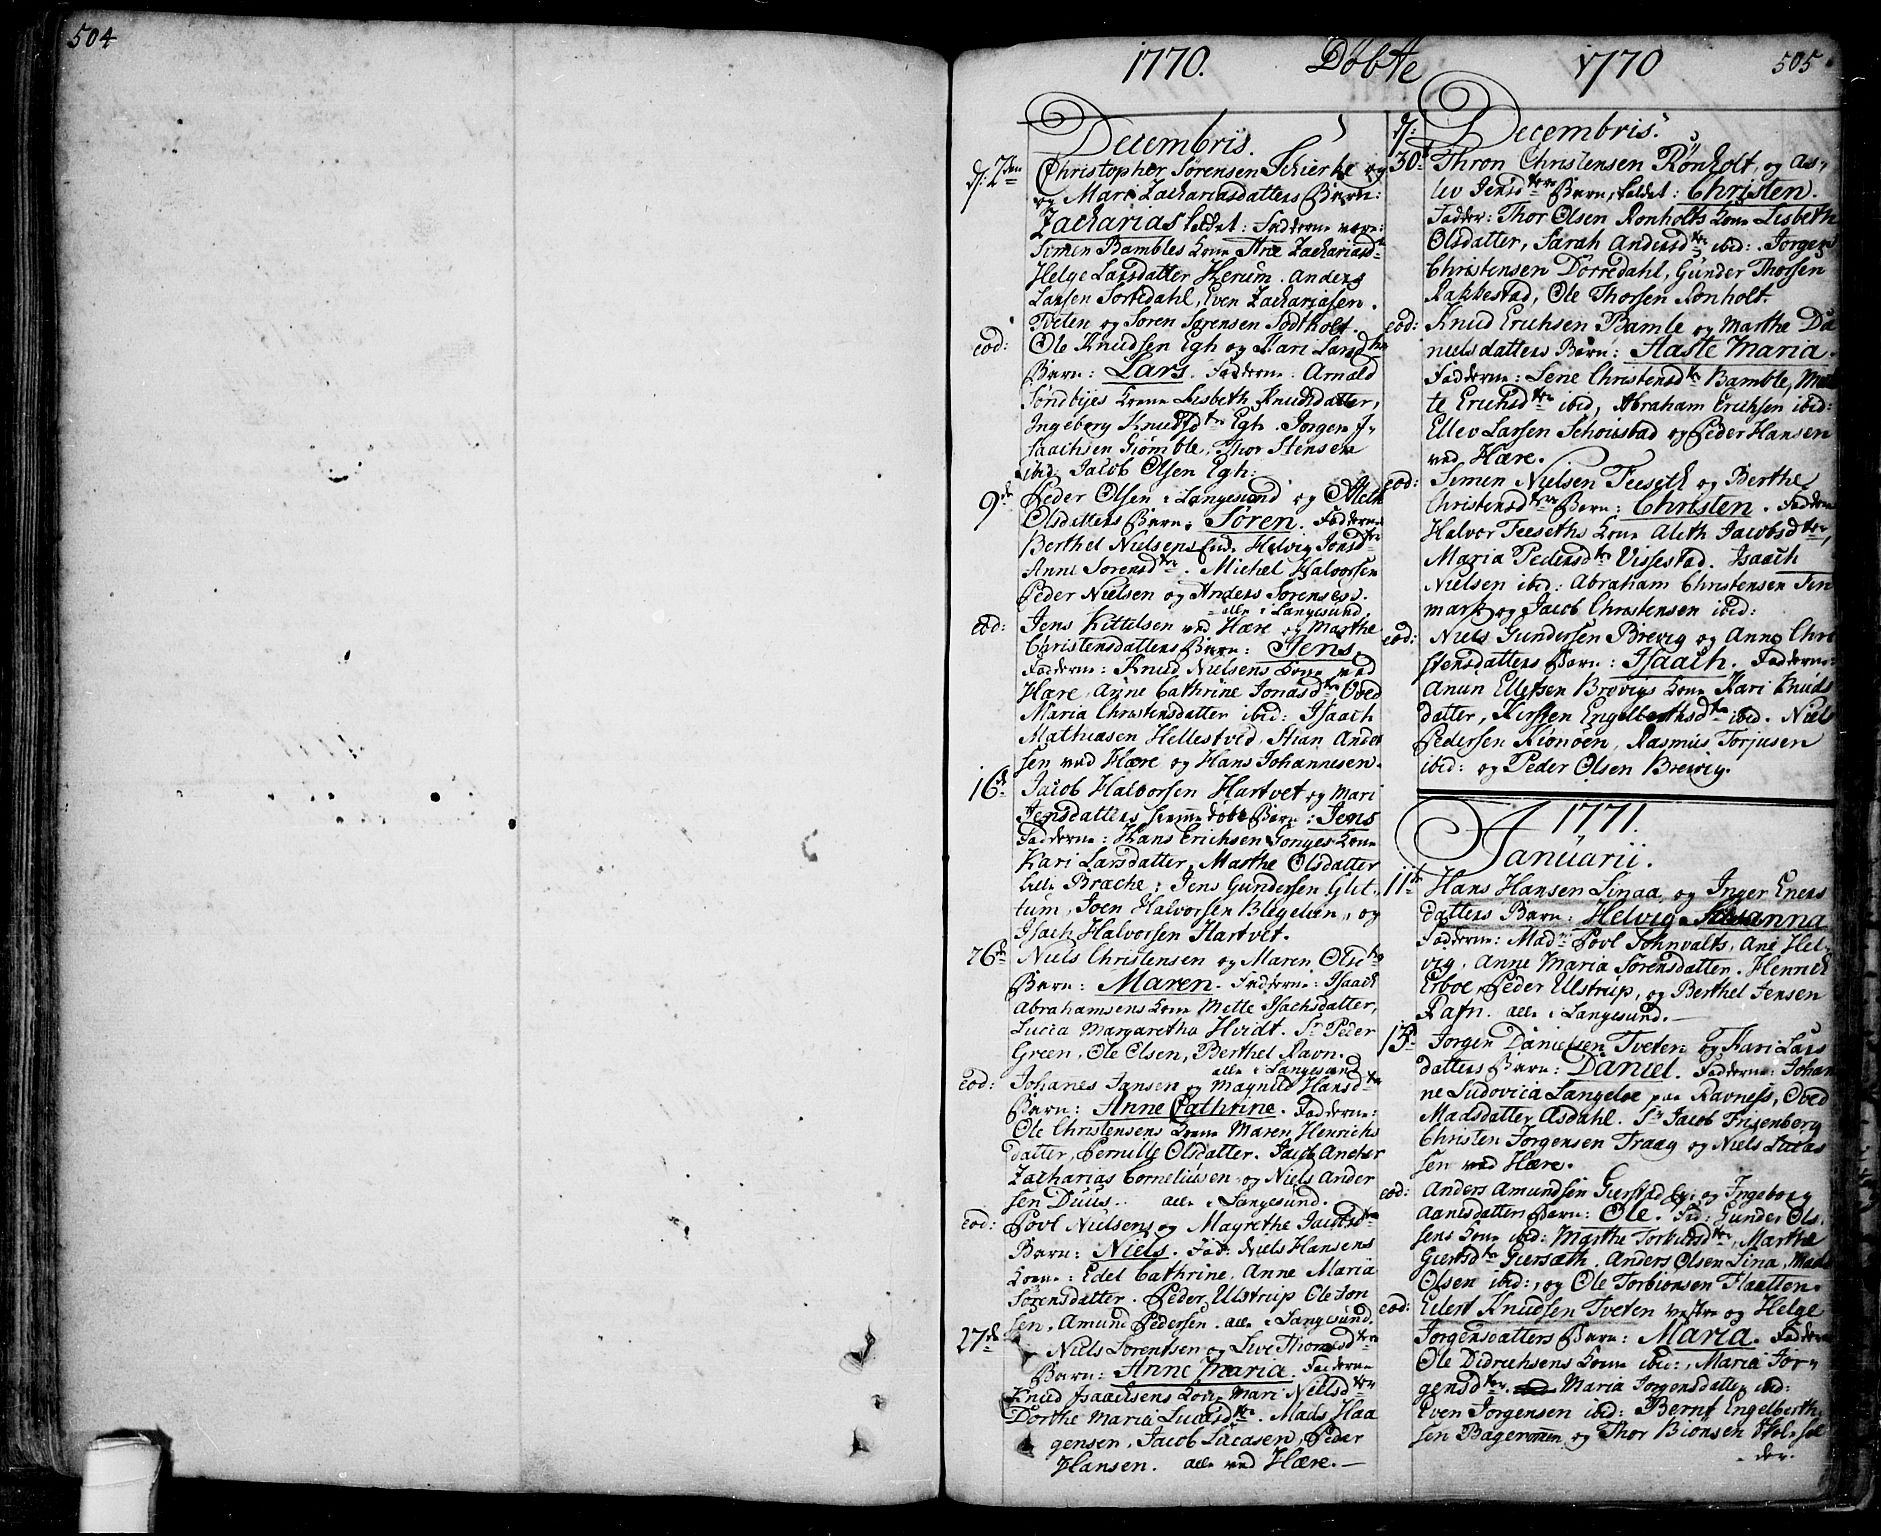 504
1770. Døbte 1770 505
Decembris.
d: 2den Christopher Sørensen Schierke og
og Mari Zachariasdatters Barn:
Zacharias kaldet: Fadderne vare:
Simen Bambles Kone Ane Zachariasd
Helge Larsdatter Herum. Anders
Larsen Sortedahl, Even Zachariasen
Tveten og Søren Sørensen Sødtholt.
eod: Ole Knudsen Egh og Kari Larsdtrs
Barn: Lars. Fadderne: Arnald
Sundbyes Kone Lisbeth Knudsdatter,
Ingeborg Knudsdtr Egh. Jørgen I-
saachsen Grømble, Thor Stensen
ibid: Jacob Olsen Egh:
9de Peder Olsen i Langesund og Aleth
Olsdatters Barn: Søren. Fadderne
Berthel Nielsens Helvig Jonsdtr
Anne Sørensdtr. Michel Halvorsen
Peder Nielsen og Anders Sørensen.
alle i Langesund.
eod: Jens Kittelsen ved Hære og Marthe
Christensdatters Barn: Jens.
Fadderne: Knud Nielsens Kone ved
Hære, Anne Cathrine Jonasdtr
Maria Christensdatter ibid: Isaach
Mathiasen Hellestved, Stian Ander
sen ved Hære og Hans Johannesen.
16de Jacob Halvorsen Hartvet og Mari
Jensdatters hiemmedøbt Barn: Jens
Fadderne: Hans Erichsen Gonges Kone
Kari Larsdatter, Marthe Olsdatter
Lille Brache: Jens Gundersen Glit-
tum, Joen Halvorsen Blegeløen, og
Isach Halvorsen Hartvet.
26de Niels Christensen og Maren Olsdtrs
Barn: Maren. Fadderne: Isaach
Abrahamsens Kone Mette Isachsdatter,
Lucia Margaretha Hvidt. Sr Peder
Green, Ole Olsen, Berthel Ravn.
alle i Langesund
eod: Johanes Jansen og Magnild Hansdtrs
Barn: Anne Cathrine. Fadderne:
Ole Christensens Kone Maren Henrichs
datter, Pernille Olsdatter. Jacob Ancher
Zacharias Corneliusen og Niels Ander
sen Duus. alle i Langesund.
eod: Povl Nielsens og Magrethe Jacobsdtrs
Barn: Niels. Fad: Niels Hansens
Kone: Edel Cathrine, Anne Maria
Sørensdatter. Peder Ulstrup Ole Jon
sen, Amund Pedersen. alle i Langesund.
27de Niels Sørentsen og Live Thomsdtrs
Barn: Anne Maria. Fadderne
Knud Isaachsens Kone Mari Nielsdtr
Dorthe Maria Lucasdtr. Mads Haa
gensen, Jacob Lucasen, Peder
Hansen. alle ved Hære.
d: Decembris.
30te Thron Christensen Rønholt, og As-
lev Jensdtrs Barn, kaldet: Christen.
Fadder: Thor Olsen Rønholts Kone Lisbeth
Olsdatter, Sarah Andersdtr ibid: Jørgen
Christensen Dorredahl, Gunder Thorsen
Rakkestad, Ole Thorsen Rønholt.
eod: Knud Erichsen Bamle og Marthe Da
nielsdatters Barn: Aaste Maria.
Fadderne: Lene Christensdtr Bamble, Mar
te Erichsdtr ibid, Abraham Erichsen ibid:
Ellev Larsen Schoustad og Peder Hansen
ved Hære.
eod: Simen Nielsen Feeseth og Berthe
Christensdtrs Barn: Christen. Fadderne
Halvor Feeseths Kone Aleth Jacobsdtr,
Maria Pedersdtr Vissestad. Isaach
Nielsen ibid: Abraham Christensen Fin
mark og Jacob Christensen ibid:
eod: Niels Gundersen Brevig og Anne Chri
stensdatters Barn: Isaach. Fadderne:
Anun Ellefsen Brevigs Kone Kari Knuds
datter, Kirsten Engelberthsdtr ibid. Niels
Pedersen Kiønøen, Rasmus Torjusen
ibid: og Peder Olsen Brevig.
1771.
Januarii.
11te Hans Hansen Linaa, og Inger Eners
datters Barn: Helvig Johanna
Fadderne: Made Povl Johnvalts, Ane Hel-
vig, Anne Maria Sørensdatter. Henrich
Erboe, Peder Ulstrup, og Berthel Jensen
Rafn. alle i Langesund.
13de Jørgen Danielsen Tveten og Kari Lars
datters Barn: Daniel. Fadderne: Johan
ne Ludovica Langeloe paa Ravness,
Madsdatter Asdahl. Sr Jacob Frisenberg
Christen Jørgensen Traag og Niels Lucas
sen ved Hære.
eod: Anders Amundsen Gierstad og Ingeborg
Aanesdatters Barn: Ole. Fad: Gunder Ols-
sens Kone ibid: Marthe Torbiønsdtr, Marthe
Giertsdtr Giersæth. Anders Olsen Lina, Mads
Olsen ibid:, og Ole Torbiønsen Flaatten.
eod: Eilert Knudsen Tveten vestre og Helge
Jørgensdatters Barn: Maria. Fadderne
Ole Didrichsens Kone ibid:, Maria Jør-
gensdtr. Maria Jørgensdatter ibid:
Even Jørgensen ibid: Bernt Engelberth
sen Bagerovnen og Thor Biønsen Hol-
der.